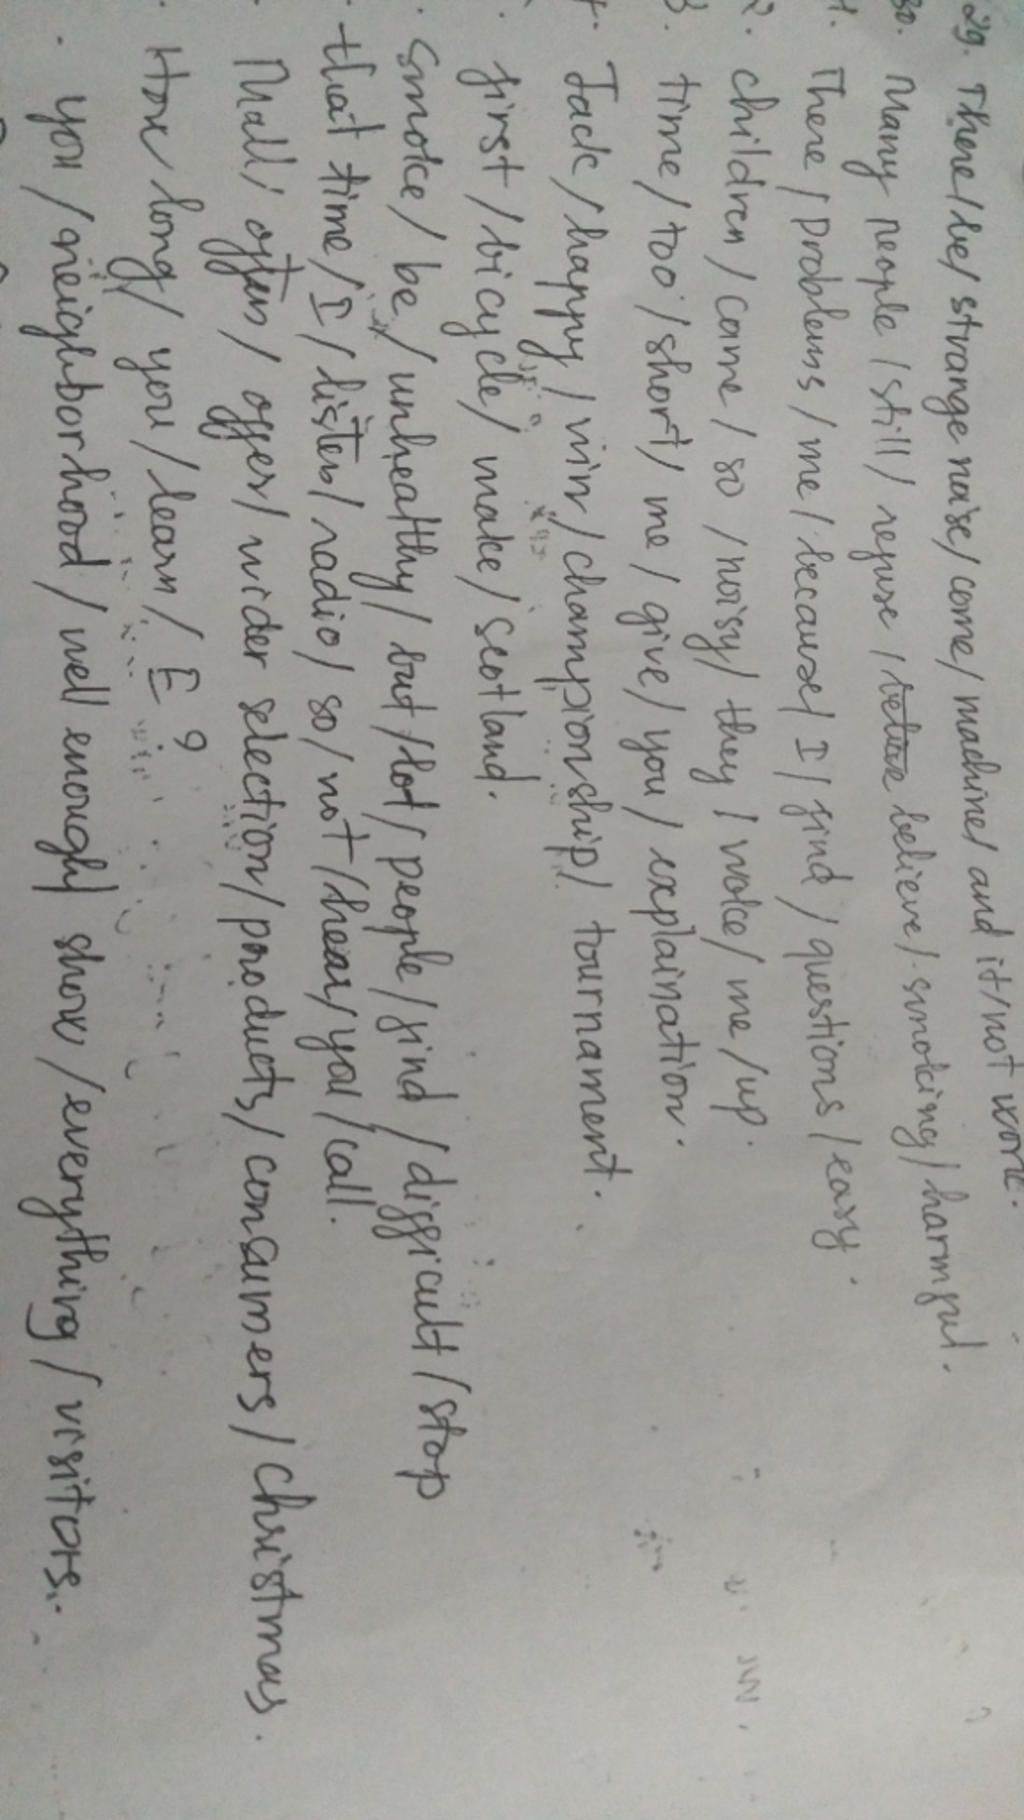 29. There/be/ strange noise/ come/ machine/ and it/not work.
30. Many people /still/ refuse / believe/ smoking/ harmful.
1. There / problems / me / because/ I / find / questions / easy.
2. children / come / so / noisy/ they / woke/ me / up.
3. time / too / short/ me / give / you / explaination.
4. Jack / happy / win / championship/ tournament.
. first / bicycle/ make / scotland.
. Smoke / be / unhealthy/ but / lot / people / find / difficult / stop
. that time / I / listen/ radio/ so/ not / hear/ you / call.
Mall/ often / offer/ wider selection / products/ consumers / Christmas.
. How long/ you / learn / E ?
. you / neighborhood / well enough/ show / everything / visitors.